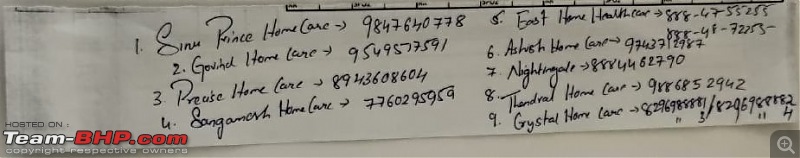 1. Sinu Prince Home Care → 9847640778
2. Govind Home Care → 9549577591
3. Precise Home Care → 8943608604
4. Sangamesh Home Care → 7760295959
5. East Home Healthcare → 888-47 55255
888-48-72255
6. Ashish Home Care → 9743712987
7. Nightingale → 8884462790
8. Thendral Home Care → 9886852942
9. Crystal Home Care → 8296988881/8296988882
" 3/ " 4
HOSTED ON :
Team-BHP.com
copyright respective owners